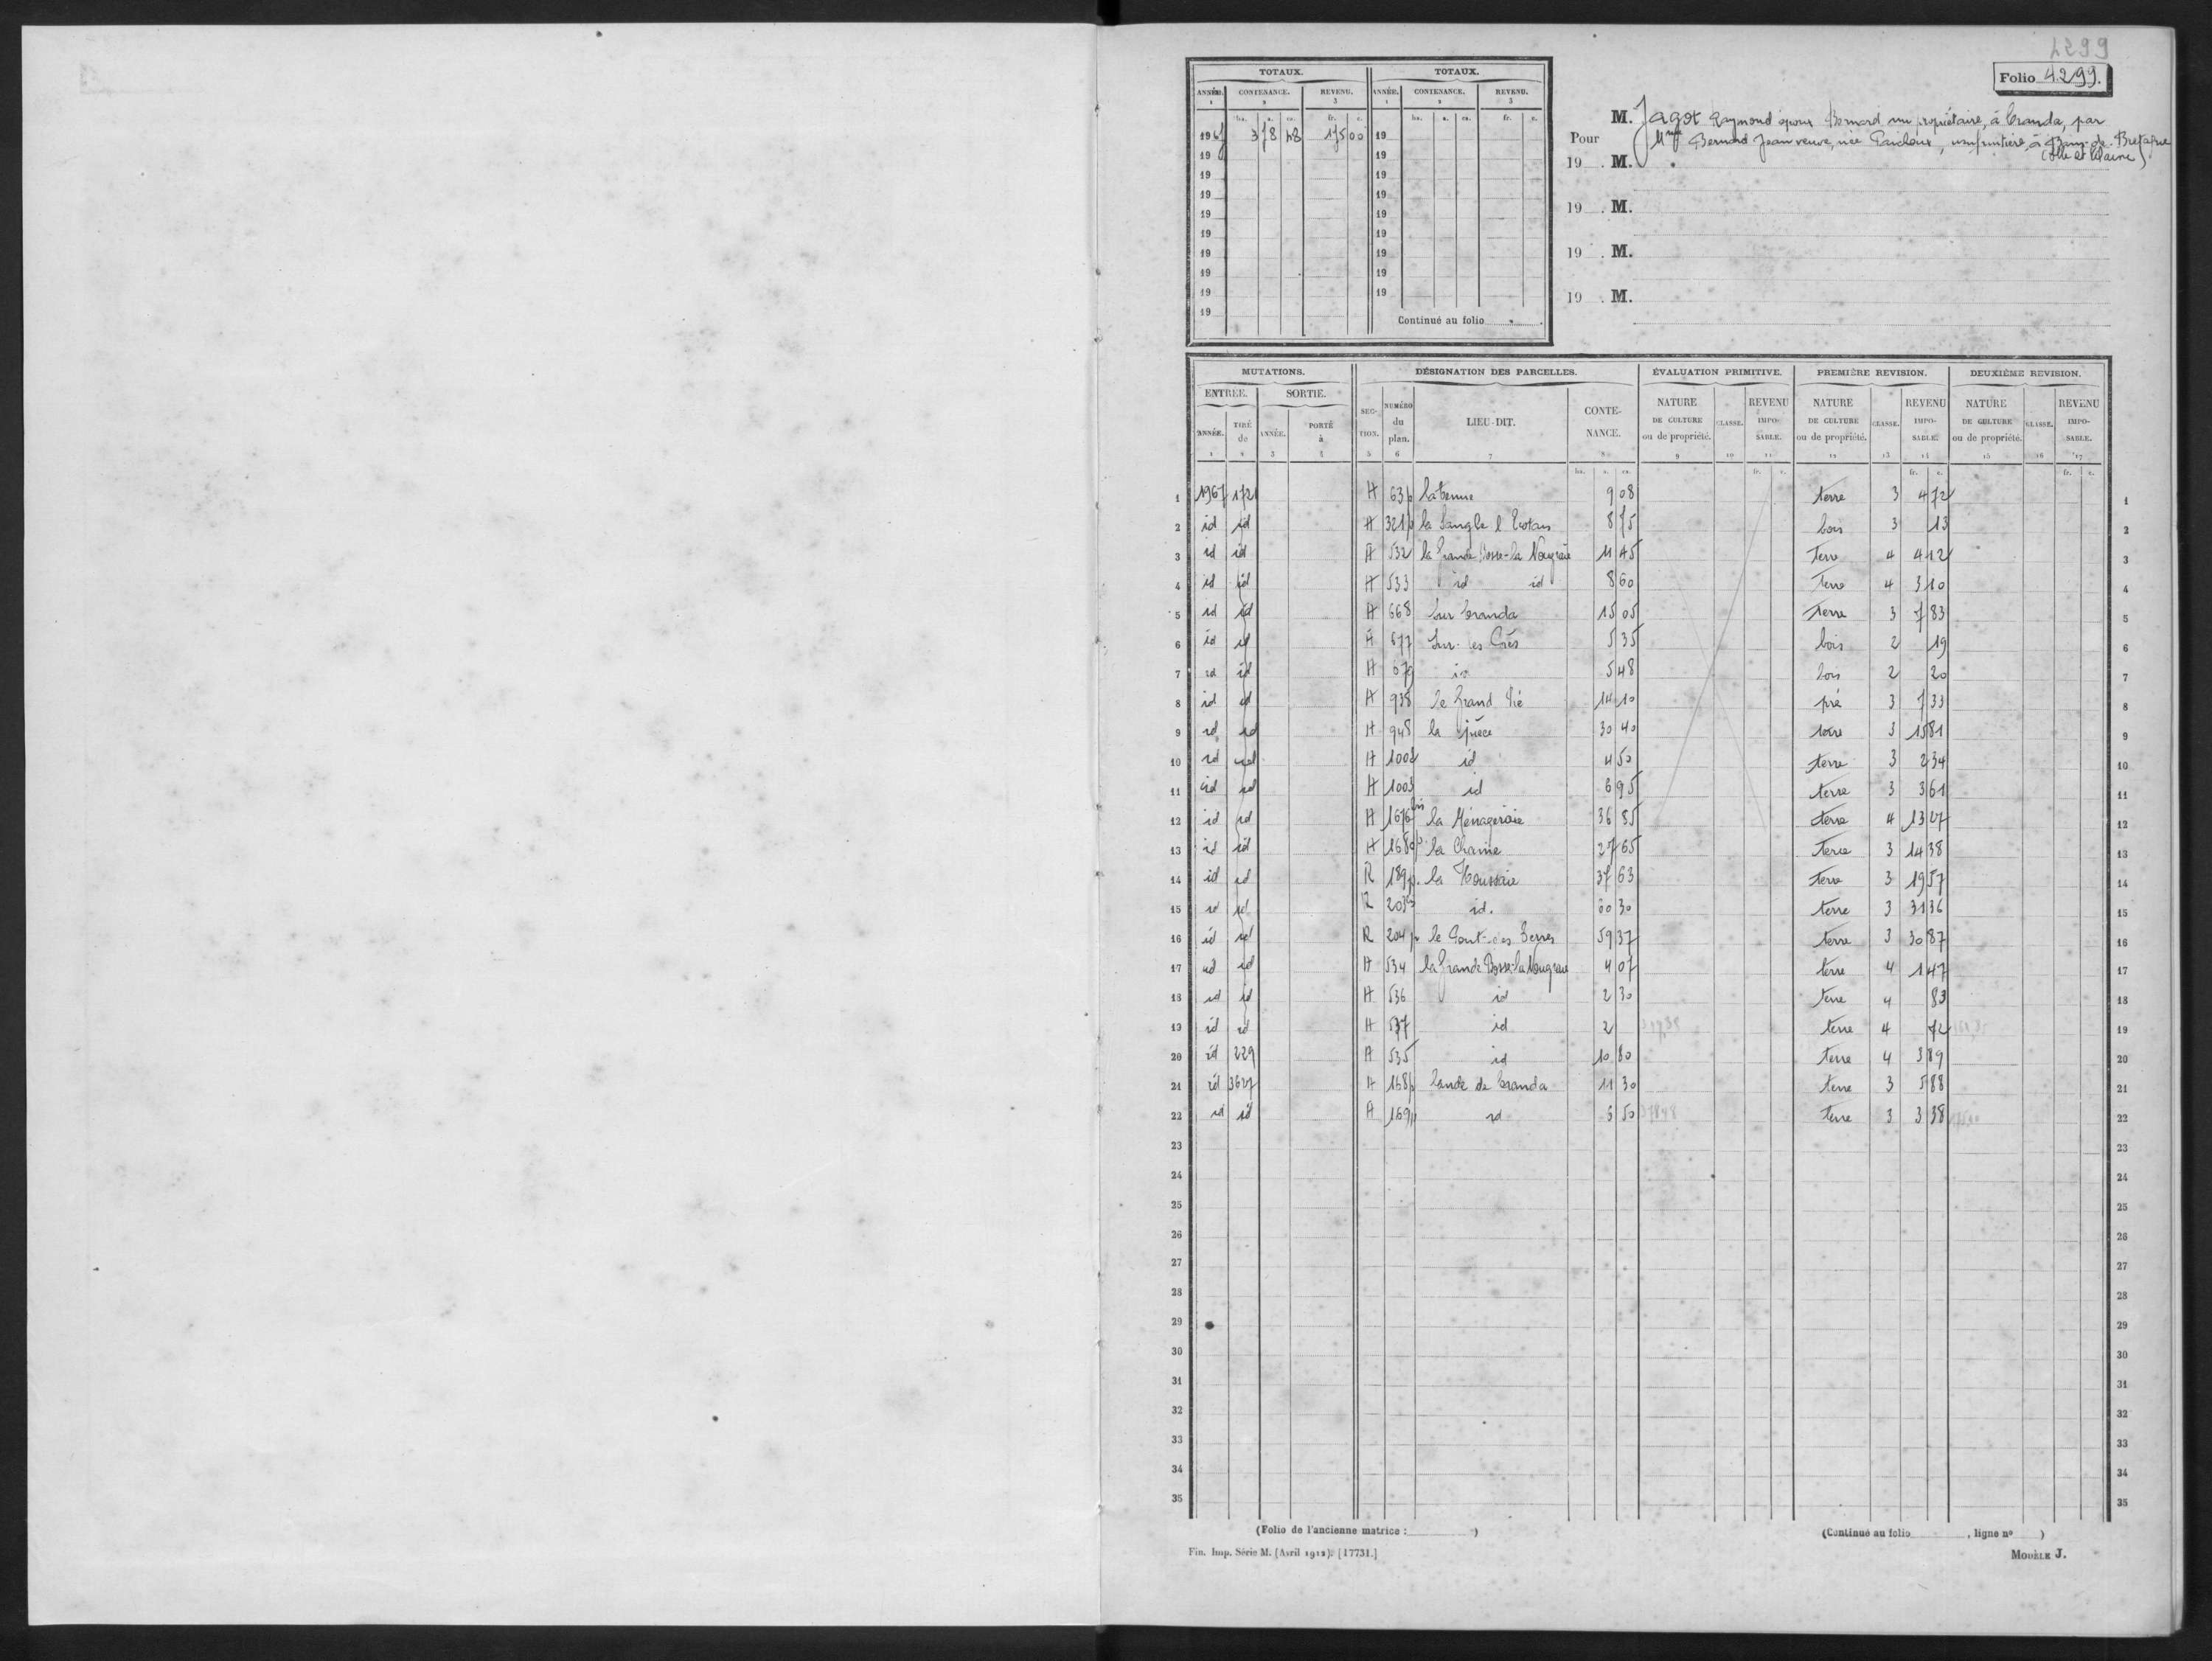 4299
Folio 4299.
TOTAUX. TOTAUX.
ANNÉE. CONTENANCE. REVENU. ANNÉE. CONTENANCE. REVENU.
1 2 3 1 2 3
ha. a. ca. fr. c. ha. a. ca. fr. c.
1967 3 78 48 175 00 19
19 19
19 19
19 19
19 19
19 19
19 19
19 19
19 19
19 Continué au folio
M. Jagot Raymond époux Bernard nu propriétaire, à Cranda, par
Pour Mme Bernard Jean veuve, née, usufruitière, à Bain-de-Bretagne
19 . M. (Ille et Vilaine)
19 . M.
19 . M.
19 . M.
MUTATIONS. DÉSIGNATION DES PARCELLES. ÉVALUATION PRIMITIVE. PREMIÈRE REVISION. DEUXIÈME REVISION.
ENTRÉE. SORTIE. SECTION. NUMÉRO du plan. LIEU-DIT. CONTENANCE. NATURE DE CULTURE ou de propriété. CLASSE. REVENU IMPOSABLE. NATURE DE CULTURE ou de propriété. CLASSE. REVENU IMPOSABLE. NATURE DE CULTURE ou de propriété. CLASSE. REVENU IMPOSABLE.
ANNÉE. TIRÉ de ANNÉE. PORTÉ à
1 2 3 4 5 6 7 8 9 10 11 12 13 14 15 16 17
ha. a. ca. fr. c. fr. c. fr. c.
1 1967 1721 H 63p 9 08 terre 3 4 72 1
2 id id H 321p la Sangle 8 75 bois 3 13 2
3 id id H 532 la Grande Bosse-la Nougraie 11 45 terre 4 4 12 3
4 id id H 533 id id 8 60 terre 4 3 10 4
5 id id H 668 sur Cranda 15 05 terre 3 7 83 5
6 id id H 677 sur les 5 35 bois 2 19 6
7 id id H 679 id 5 48 bois 2 20 7
8 id id H 938 le Grand Pré 14 10 pré 3 7 33 8
9 id id H 948 la pièce 30 40 terre 3 15 81 9
10 id id H 1002 id 4 50 terre 3 2 34 10
11 id id H 1003 id 6 95 terre 3 3 61 11
12 id id H 1676 bis la Ménageraie 36 85 terre 4 13 27 12
13 id id H 1680p la Chaine 27 65 terre 3 14 38 13
14 id id R 189p. la Houssaie 37 63 terre 3 19 57 14
15 id id R 203p id. 60 30 terre 3 31 36 15
16 id id R 204p le Bout-des Terres 59 37 terre 3 30 87 16
17 id id H 534 la Grande Bosse-la Nougraie 4 07 terre 4 1 47 17
18 id id H 536 id 2 30 terre 4 83 18
19 id id H 537 id 2 terre 4 72 19
20 id 229 H 535 id 10 80 terre 4 3 89 20
21 id 3627 H 168p lande de Cranda 11 30 terre 3 5 88 21
22 id id H 169p id 6 50 37848 terre 3 3 38 22
23 23
24 24
25 25
26 26
27 27
28 28
29 29
30 30
31 31
32 32
33 33
34 34
35 35
(Folio de l'ancienne matrice : ) (Continué au folio , ligne nº )
Fin. Imp. Série M. (Avril 1912). [17731.] MODÈLE J.